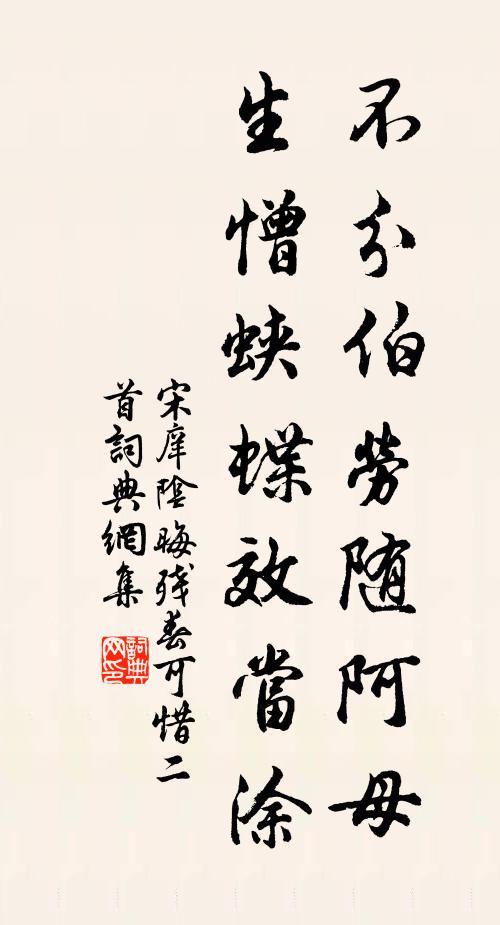 不分伯勞随阿母
生憎蛺蝶效當涂
宋庠陰晦残春可惜二
首詞典網集
詞典网印